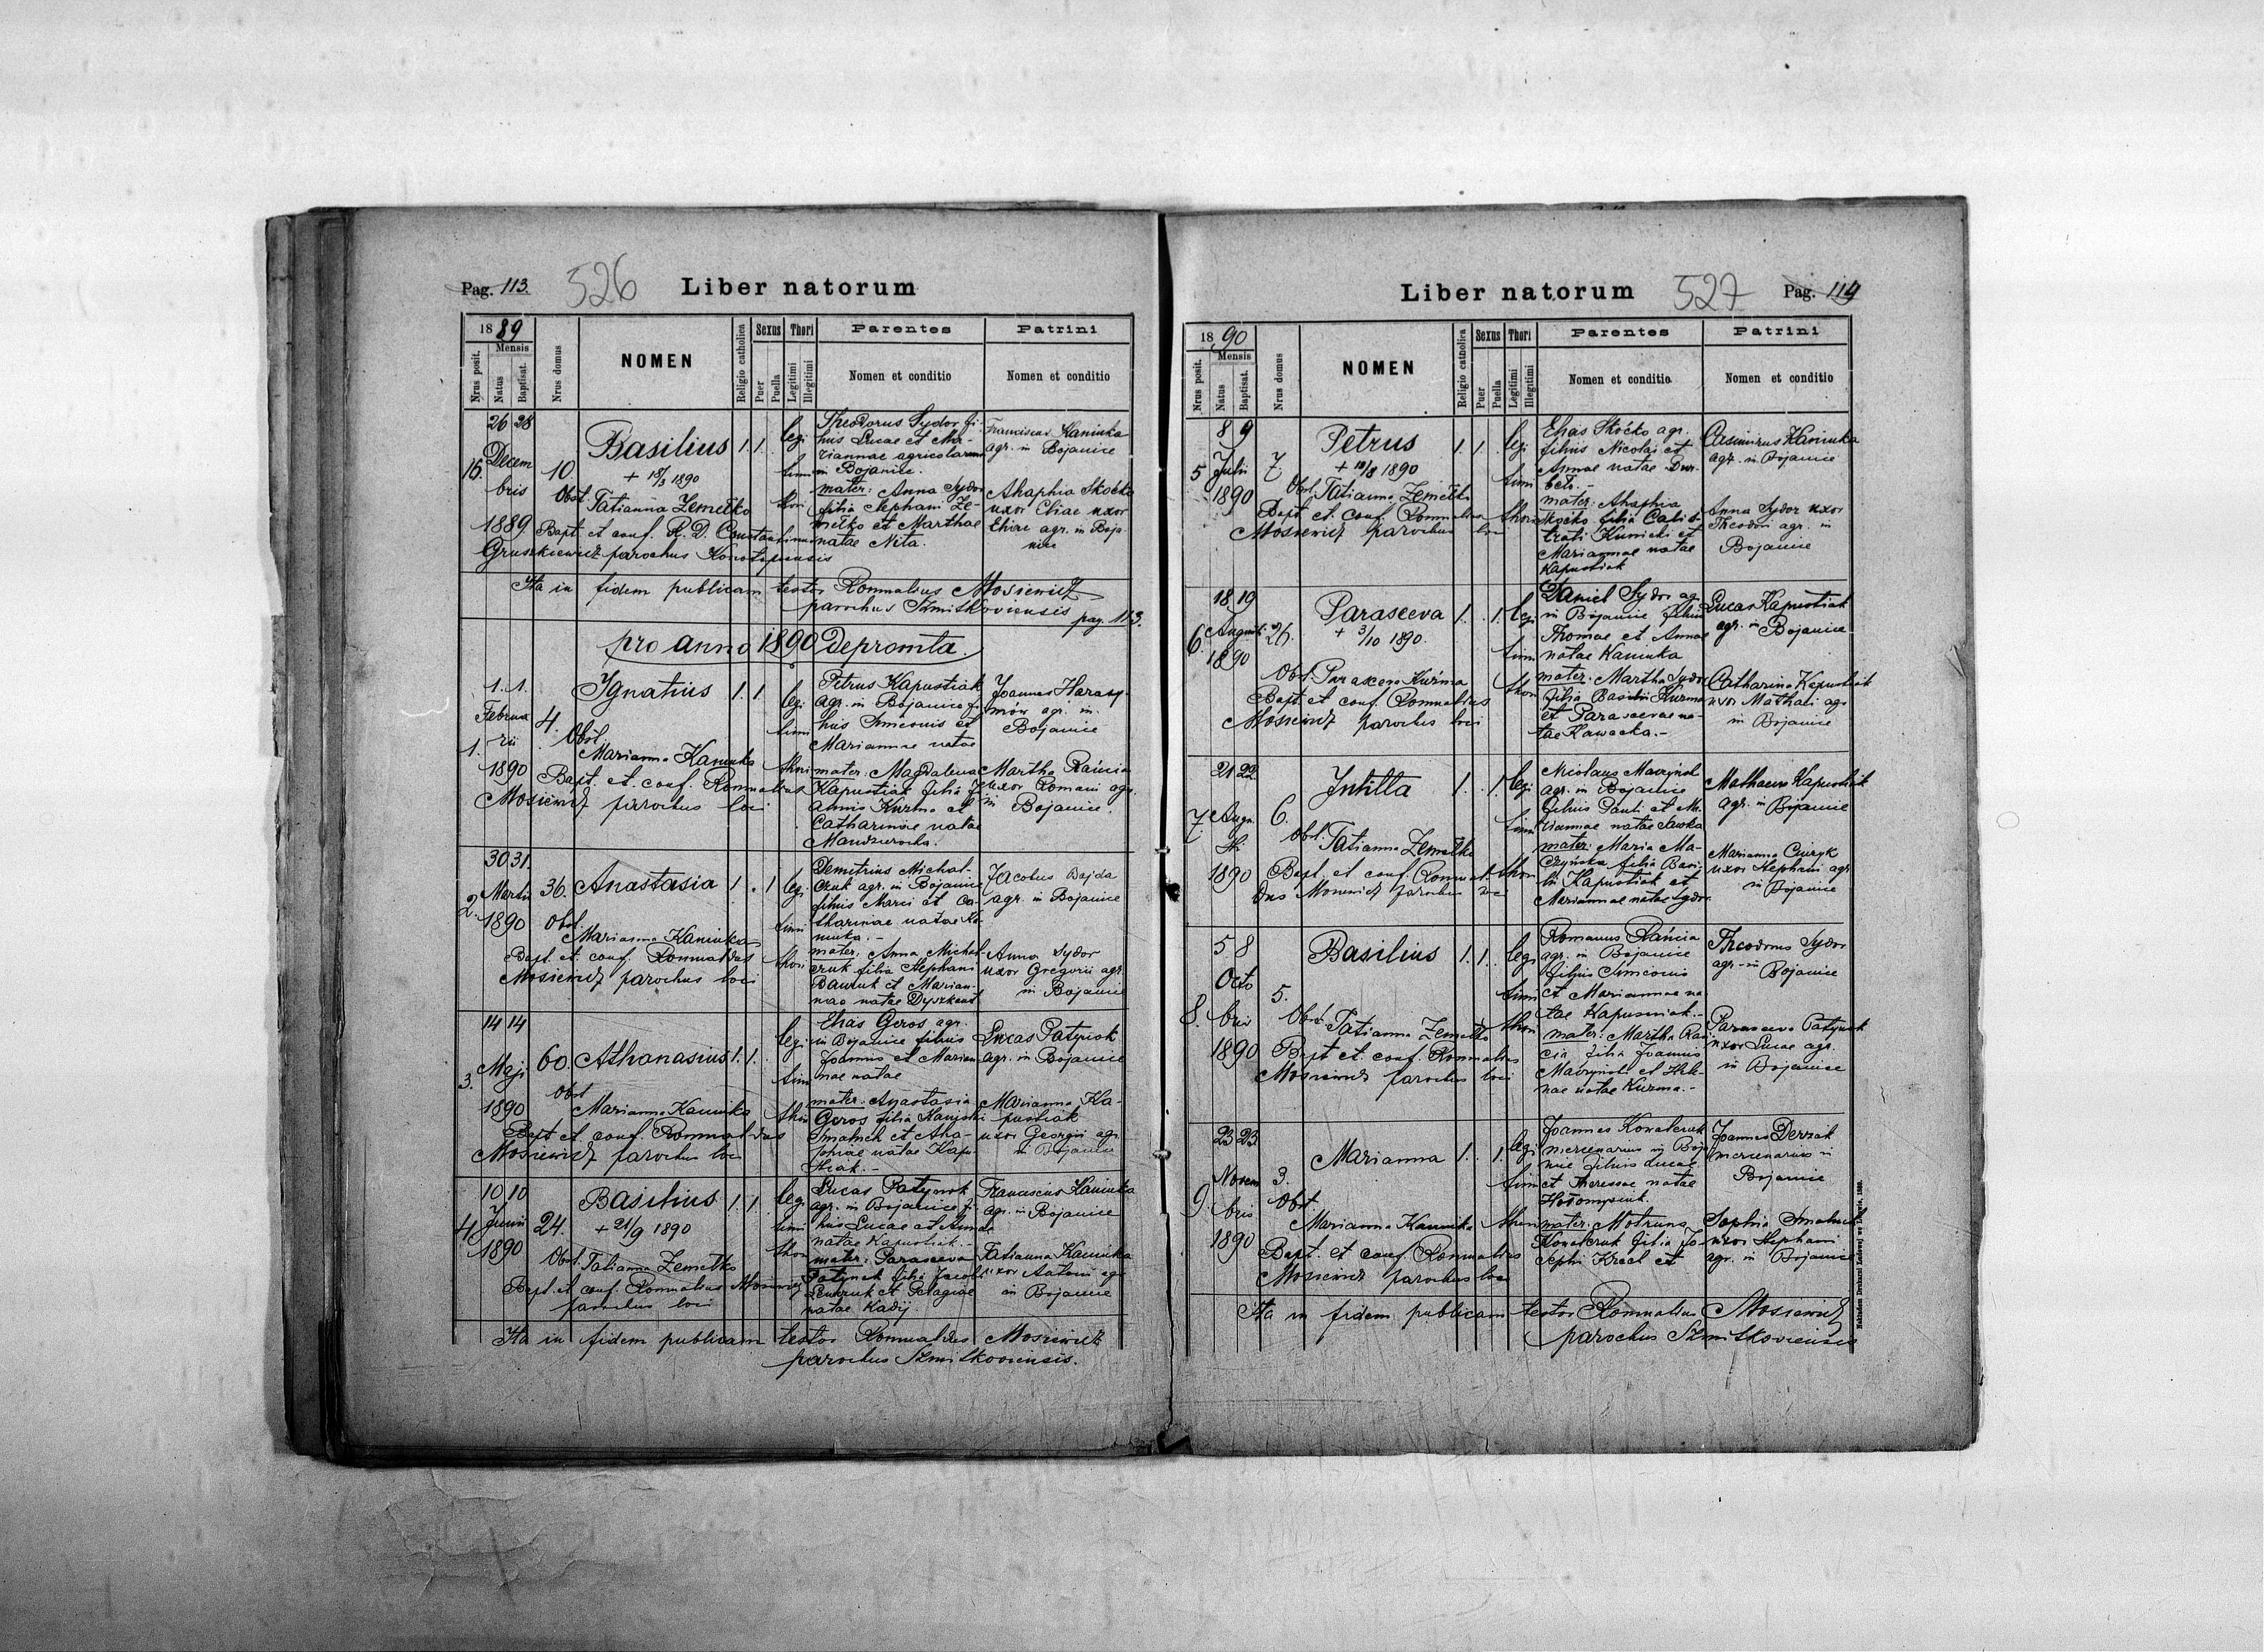 Pag. 113. 526 Liber natorum
1889
Nrus posit.
Mensis
Natus
Baptisat.
Nrus domus
NOMEN
Religio catholica
Sexus
Puer
Puella
Thori
Legitimi
Illegitimi
Parentes
Nomen et conditio
Patrini
Nomen et conditio
16. 26 28
Decem
bris
1889
10.
Basilius 1. 1.
+ 18/3 1890
Obst. Tatianna Zemełko
Bapt et conf. R. D. Constantinus
Gruszkiewicz parochus Konotopensis
legi
timi
thori
Theodorus Sydor fi-
lius Lucae et Ma-
riannae agricolarum
in Bojanice.
mater: Anna Sydor
filia Stephani Ze-
mełko et Marthae
natae Nita.
Franciscus Kaniuka
agr. in Bojanice
Ahaphia Skoćko
uxor Eliae uxor
Eliae agr. in Boja-
nice
Ita in fidem publicam testor Romualdus Mosiewicz
parochus Szmitkoviensis
pag. 113.
pro anno 1890 depromta.
1. 1. 1.
Februa
rii
1890
4.
Ignatius 1. 1.
Obst.
Marianna Kaniuka
Bapt. et. conf. Romualdus
Mosiewicz parochus loci
legi
timi
thori
Petrus Kapustiak
agr. in Bojanice fi-
lius Simeonis et
Mariannae natae
mater: Magdalena
Kapustiak filia Jo-
annis Kuzma et
Catharinae natae
Joannes Harasy-
mów agr. in
Bojanice
Martha Rańcia
uxor Romani agr.
in Bojanice.
2. 30 31.
Martii
1890
36. Anastasia 1. . 1
Obst.
Marianna Kaniuka
Bapt. et. conf. Romualdus
Mosiewicz parochus loci
legi
timi
thori
Demetrius Michal-
czuk agr. in Bojanice
filius Marci et Ca-
tharinae natae Ka-
niuka. -
mater: Anna Michal-
czuk filia Stephani
et Marian-
nae natae
Jacobus Bajda
agr. in Bojanice
Anna Sydor
uxor Gregorii agr.
in Bojanice
3. 14 14
Maji
1890
60. Athanasius 1. 1.
Obst
Marianna Kaniuka
Bapt et conf. Romualdus
Mosiewicz parochus loci
legi
timi
thori
Elias Geros agr.
in Bojanice filius
Joannis et Marian
nae natae
mater: Anastasia
Geros filia
Smaluch et Aha-
phiae natae Kapu-
stiak. -
Lucas Patynok
agr. in Bojanice
Marianna Ka-
pustiak
uxor Georgii agr.
in Bojanice
4. 10 10
Junii
1890
24.
Basilius 1. 1.
+ 21/9 1890
Obst. Tatianna Zemełko
Bapt. et conf. Romualdus Mosiewicz
parochus loci
legi
timi
thori
Lucas Patynok
agr. in Bojanice fi-
lius Lucae et Annae
natae Kapustiak. -
mater: Parasceva
Patynok filia Jacobi
et Pelagiae
natae Kadij
Franciscus Kaniuka
agr. in Bojanice
Tatianna Kaniuka
uxor Antonii agr.
in Bojanice
Ita in fidem publicam testor Romualdus Mosiewicz
parochus Szmitkoviensis.
Liber natorum 527 Pag. 114
1890
Nrus posit.
Mensis
Natus
Baptisat.
Nrus domus
NOMEN
Religio catholica
Sexus
Puer
Puella
Thori
Legitimi
Illegitimi
Parentes
Nomen et conditio
Patrini
Nomen et conditio
5 8 9
Julii
1890
7.
Petrus 1. 1.
+ 10/8 1890
Obst. Tatianna Zemełko
Bapt. et. conf. Romualdus
Mosiewicz parochus loci
legi
timi
thori
Elias Skoćko agr.
filius Nicolai et
Annae natae
mater: Ahaphia
Skoćko filia Calis-
trati Kunicki et
Mariannae natae
Kapustiak
Casimirus Kaniuka
agr. in Bojanice
Anna Sydor uxor
Theodori agr. in
Bojanice
6. 18 19
Augusti
1890
26.
Parasceva 1. . 1.
+ 3/10 1890.
Obst. Parasceva Kuzma
Bapt. et conf. Romualdus
Mosiewicz parochus loci
legi
timi
thori
Daniel Sydor ag.
in Bojanice filius
Thomae et Annae
natae Kaniuka
mater: Martha Sydor
filia Basilii Kuzma
et Parascevae na-
tae Kawecka. -
Lucas Kapustiak
agr. in Bojanice
Catharina Kapustiak
uxor Mathaei agr
in Bojanice
7. 21 22
Augu
sti
1890
6.
Julitta 1. . 1.
Obst. Tatianna Zemełko
Bapt. et conf. Romual-
dus Mosiewicz parochus loci
legi
timi
thori
Nicolaus Maczyński
agr. in Bojanice
filius Pauli et Ma-
riannae natae Sawka
mater: Maria Ma-
czyńska filia Basi-
lii Kapustiak et
Mariannae natae Sydor
Mathaeus Kapustiak
agr. in Bojanice
Marianna Ciuryk
uxor Stephani agr
in Bojanice
8. 5 8
Octo
bris
1890
5.
Basilius 1. 1.
Obst. Tatianna Zemełko
Bapt et. conf. Romualdus
Mosiewicz parochus loci
legi
timi
thori
Romanus Rańcia
agr. in Bojanice
filius Simeonis
et Mariannae na
tae Kapustiak. -
mater: Martha Rań
cia filia Joannis
Maczyński et Hele-
nae natae Kuzma. -
Theodorus Sydor
agr. in Bojanice
Parasceva Patynok
uxor Lucae agr.
in Bojanice
9. 23 23.
Novem
bris
1890
3.
Marianna 1. . 1.
Obst.
Marianna Kaniuka
Bapt. et conf. Romualdus
Mosiewicz parochus loci
legi
timi
thori
Joannes Kowalczuk
mercenarius in Boja
nice filius Lucae
et Theressae natae
mater: Motruna
Kowalczuk filia Jo-
sephi Krech et
Joannes Derzak
mercenarius in
Bojanice
Sophia Smaluch
uxor Stephani
agr. in Bojanice
Ita in fidem publicam testor Romualdus Mosiewicz
parochus Szmitkoviensis
Nakładem Drukarni Ludowej we Lwowie, 1889.